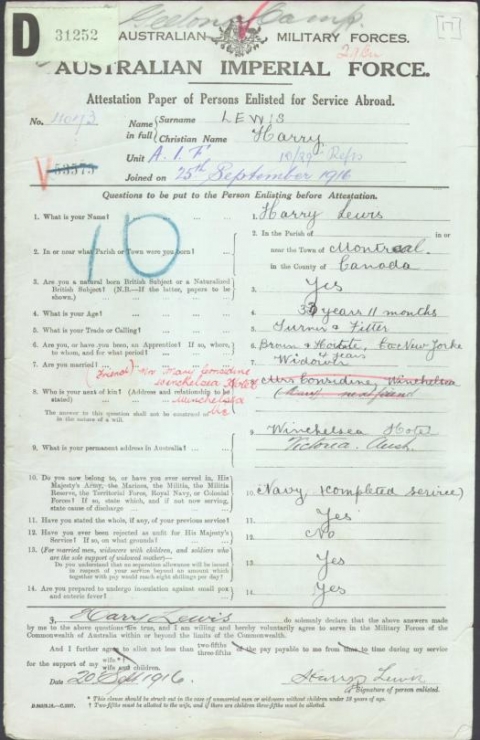 Geelong Camp.
D 31252
AUSTRALIAN MILITARY FORCES.
AUSTRALIAN IMPERIAL FORCE.
Attestation Paper of Persons Enlisted for Service Abroad.
No. Name in full { Surname LEWIS
Christian Name Harry
Unit A.I.F. 10/29 Refs
53575
Joined on 25th September 1916
Questions to be put to the Person Enlisting before Attestation.
1. What is your Name? ... ... ... 1. Harry Lewis
2. In or near what Parish or Town were you born? ... 2. In the Parish of in or
near the Town of Montreal
in the County of Canada
10
3. Are you a natural born British Subject or a Naturalized British Subject? (N.B.—If the latter, papers to be shown.) ... 3. Yes
4. What is your Age? ... ... ... 4. 33 years 11 months
5. What is your Trade or Calling? ... ... 5. Turner & Fitter
6. Are you, or have you been, an Apprentice? If so, where, to whom, and for what period? ... 6. New Yorke
years
7. Are you married? ... ... ... 7. Widower
(Friend) Mrs Mary Considine
Winchelsea Hotel
Winchelsea
Vic
8. Who is your next of kin? (Address and relationship to be stated) ... 8. Mrs Considine, Winchelsea
The answer to this question shall not be construed as in the nature of a will.
9. What is your permanent address in Australia? ... 9. Winchelsea Hotel
Victoria. Aush.
10. Do you now belong to, or have you ever served in, His Majesty's Army, the Marines, the Militia, the Militia Reserve, the Territorial Force, Royal Navy, or Colonial Forces? If so, state which, and if not now serving, state cause of discharge ... 10. Navy (completed service)
11. Have you stated the whole, if any, of your previous service? 11. Yes
12. Have you ever been rejected as unfit for His Majesty's Service? If so, on what grounds? ... 12. No
13. (For married men, widowers with children, and soldiers who are the sole support of widowed mother)—
Do you understand that no separation allowance will be issued in respect of your service beyond an amount which together with pay would reach eight shillings per day? 13. Yes
14. Are you prepared to undergo inoculation against small pox and enteric fever? ... 14. Yes
I, Harry Lewis do solemnly declare that the above answers made
by me to the above questions are true, and I am willing and hereby voluntarily agree to serve in the Military Forces of the
Commonwealth of Australia within or beyond the limits of the Commonwealth.
And I further agree to allot not less than two-fifths three-fifths of the pay payable to me from time to time during my service
for the support of my wife* wife and children.
Date 1916. Harry Lewis
Signature of person enlisted.
* This clause should be struck out in the case of unmarried men or widowers without children under 18 years of age.
† Two-fifths must be allotted to the wife, and if there are children three-fifths must be allotted.